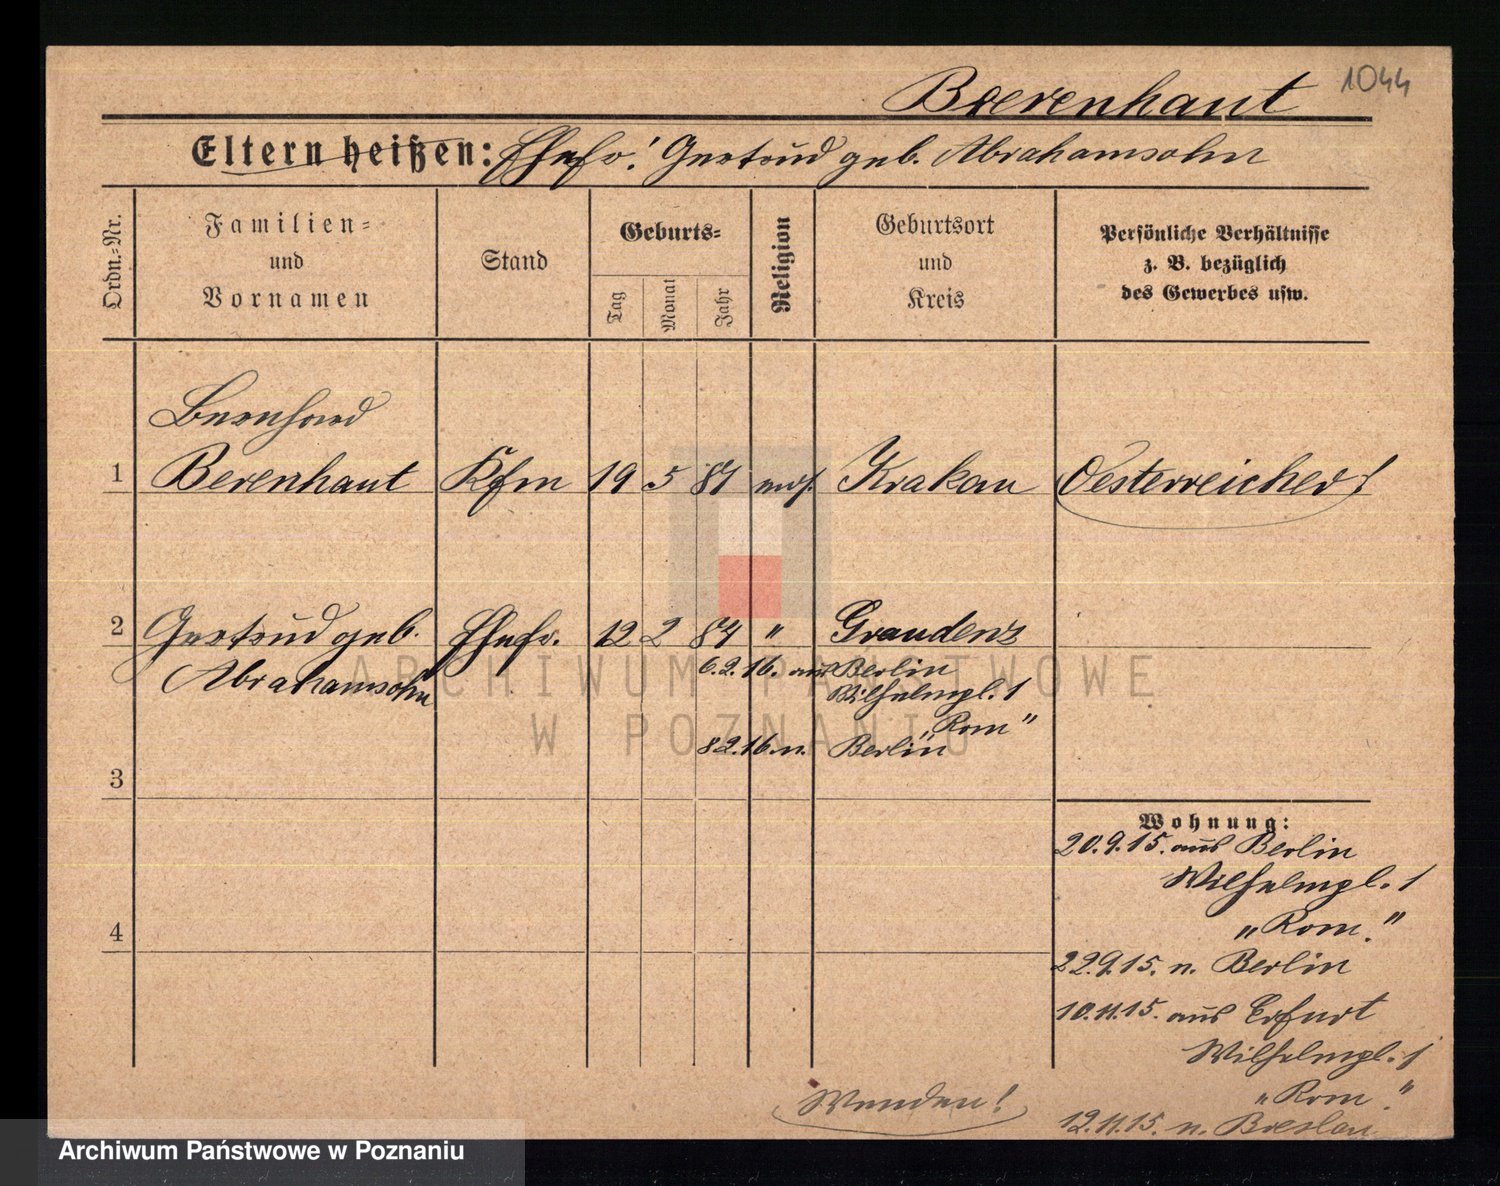 1044
Berenhaut
Eltern heißen: Ehefr: Gertrud geb. Abrahamsohn
Ordn.=Nr.
Familien=
und
Vornamen
Stand
Geburts=
Tag
Monat
Jahr
Religion
Geburtsort
und
Kreis
Persönliche Verhältnisse
z. B. bezüglich
des Gewerbes usw.
Bernhard
1 Berenhaut Kfm 19 5 87 mos. Krakau Oesterreicher!
2 Gertrud geb. Ehefr. 12 2 84 " Graudenz
Abrahamsohn
6.2.16. aus Berlin
Wilhelmpl. 1
"Rom"
8.2.16. n. Berlin
3
Wohnung:
20.9.15. aus Berlin
Wilhelmpl. 1
"Rom."
22.9.15. n. Berlin
10.11.15. aus Erfurt
Wilhelmpl. 1
"Rom."
12.11.15. n. Breslau
4
Wenden!
ARCHIWUM PAŃSTWOWE
W POZNANIU
Archiwum Państwowe w Poznaniu